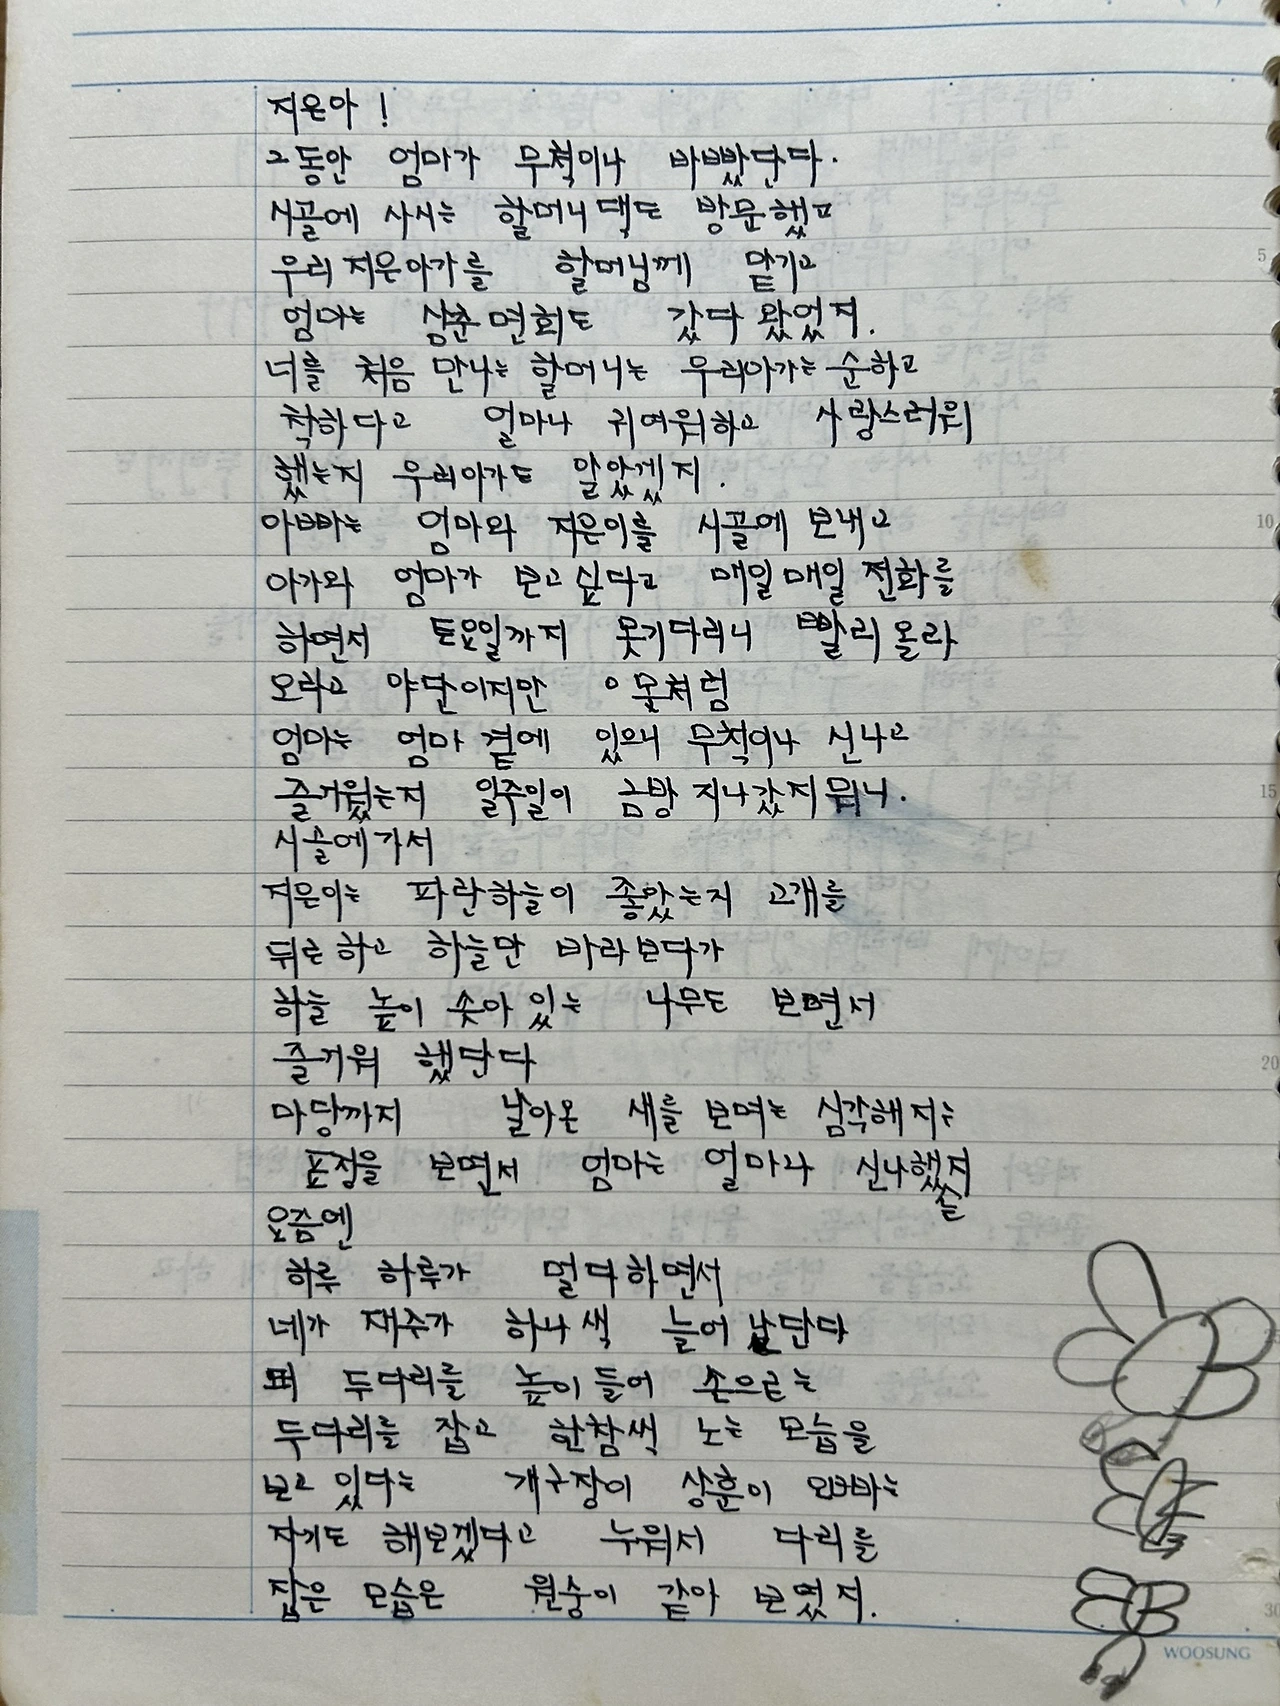 지은아 !
그동안 엄마가 무척이나 바빴단다.
시골에 사시는 할머니댁도 방문했고
우리 지은아가를 할머님께 맡기고
엄마는 삼춘 면회도 갔다 왔었지.
너를 처음 만나는 할머니는 우리아가는 순하고
착하다고 얼마나 귀여워하고 사랑스러워
했는지 우리아가도 알았겠지.
아빠는 엄마와 지은이를 시골에 보내고
아가와 엄마가 보고싶다고 매일매일 전화를
하면서 토요일까지 못기다리니 빨리 올라
오라고 야단이지만
엄마는 엄마 곁에 있으니 무척이나 신나고
즐거웠는지 일주일이 금방 지나갔지 뭐니.
시골에가서
지은이는 파란하늘이 좋았는지 고개를
뒤로하고 하늘만 바라보다가
하늘 높이 솟아 있는 나무도 보면서
즐거워 했단다
마당까지 날아온 새를 보며는 심각해지는
표정을 보면서 엄마는 얼마나 신나했지
요즘엔
하루 하루가 멀다하면서
네가 재주가 하나 색 늘어 난단다
두다리를 높이들어 손으로는
두다리를 잡고 한참씩 노는 모습을
보고 있다는 개구장이 상훈이 오빠는
자기도 해보겠다고 누워서 다리를
잡은 모습은 원숭이 같아 보였지.
5
10
15
20
30
WOOSUNG